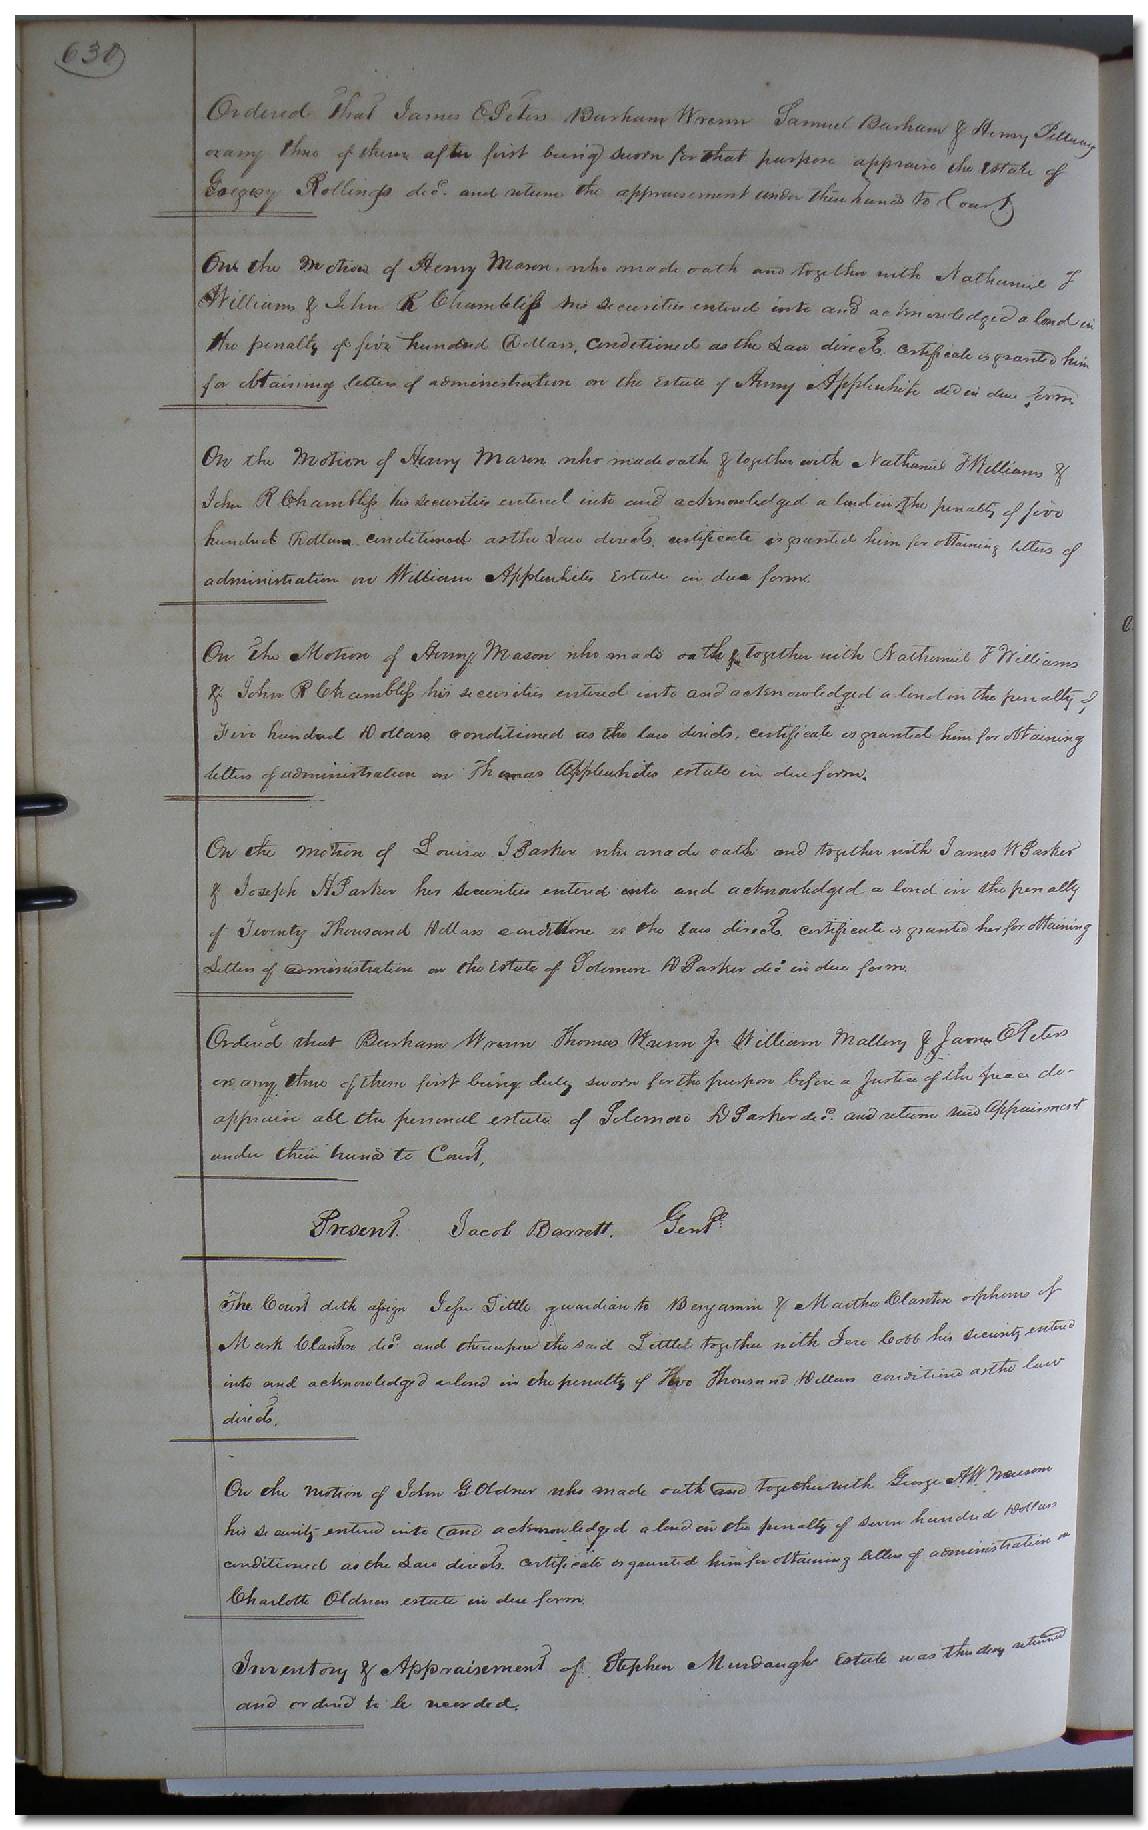 630
Ordered that James E Peters Barham Wrenn Samuel Barham & Henry Pettway
or any three of them after first being sworn for that purpose appraise the Estate of
Gregory Rollings decd. and return the appraisement under their hands to Court
On the Motion of Henry Mason who made oath and together with Nathaniel F
Williams & John R Chambliss his securities entered into and acknowledged a bond in
the penalty of five hundred Dollars, conditioned as the Law directs, certificate is granted him
for obtaining letters of administration on the Estate of Henry Applewhite decd in due form
On the Motion of Henry Mason who made oath & together with Nathaniel F Williams &
John R Chambliss his securities entered into and acknowledged a bond in the penalty of five
hundred Dollars conditioned as the Law directs, certificate is granted him for obtaining letters of
administration on William Applewhites Estate in due form.
On the Motion of Henry Mason who made oath & together with Nathaniel F Williams
& John R Chambliss his securities entered into and acknowledged a bond in the penalty of
Five hundred Dollars conditioned as the law directs, certificate is granted him for obtaining
letters of administration on Thomas Applewhites estate in due form.
On the motion of Louisa J Parker who made oath and together with James W Parker
& Joseph H Parker her securities entered into and acknowledged a bond in the penalty
of Twenty Thousand Dollars conditione as the law directs, certificate is granted her for obtaining
Letters of administration on the Estate of Solomon D Parker decd in due form.
Ordered that Barham Wrenn Thomas Wrenn Jr William Mallory & James E Peters
or any three of them first being duly sworn for the purpose before a Justice of the peace do
appraise all the personal estate of Solomon D Parker decd. and return said Appraisment
under their hands to Court,
Present. Jacob Barrett. Gent.
The Court doth assign Jesse Little guardian to Benjamin & Martha Clanton orphans of
Mark Clanton decd and thereupon the said Little together with Jere Cobb his security entered
into and acknowledged a bond in the penalty of Two Thousand Dollars conditioned as the law
directs.
On the motion of John G Oldner who made oath and together with George A W Newsom
his security entered into and acknowledged a bond in the penalty of seven hundred Dollars
conditioned as the Law directs. certificate is granted him for obtaining letters of administration on
Charlotte Oldners estate in due form.
Inventory & Appraisement of Stephen Murdaugh Estate was this day returned
and ordered to be recorded.